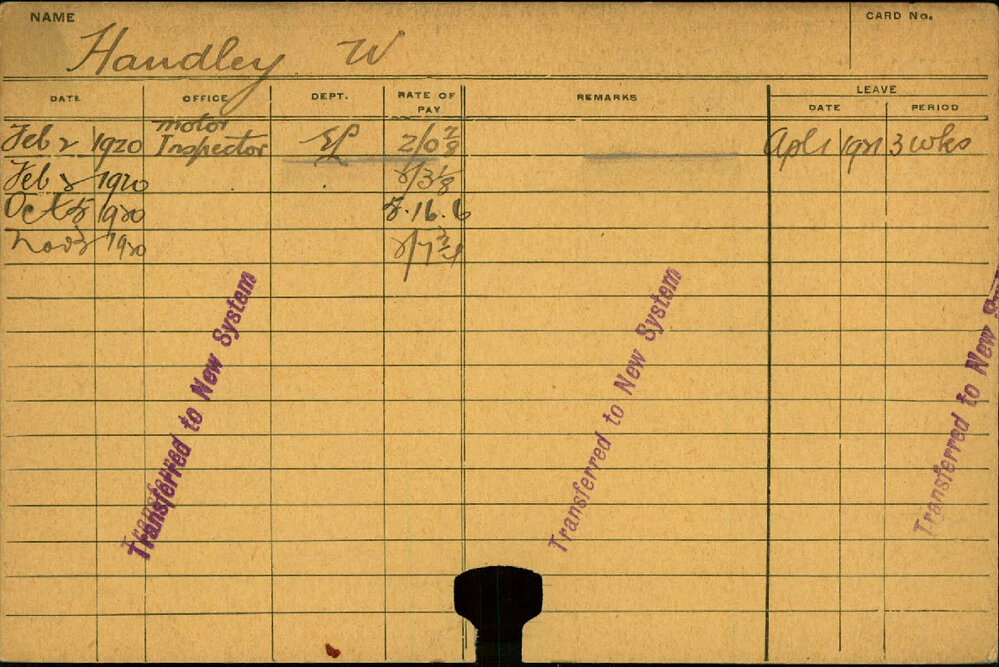 NAME
CARD No.
Handley W
DATE OFFICE DEPT. RATE OF PAY REMARKS LEAVE
DATE PERIOD
Feb 2 1920 Motor Inspector 2/0 Apl 1 1921 3 wks
Feb 1920
Oct 5 1920 5.16.6
Nov 3 1920
Transferred to New System
Transferred to New System
Transferred to New